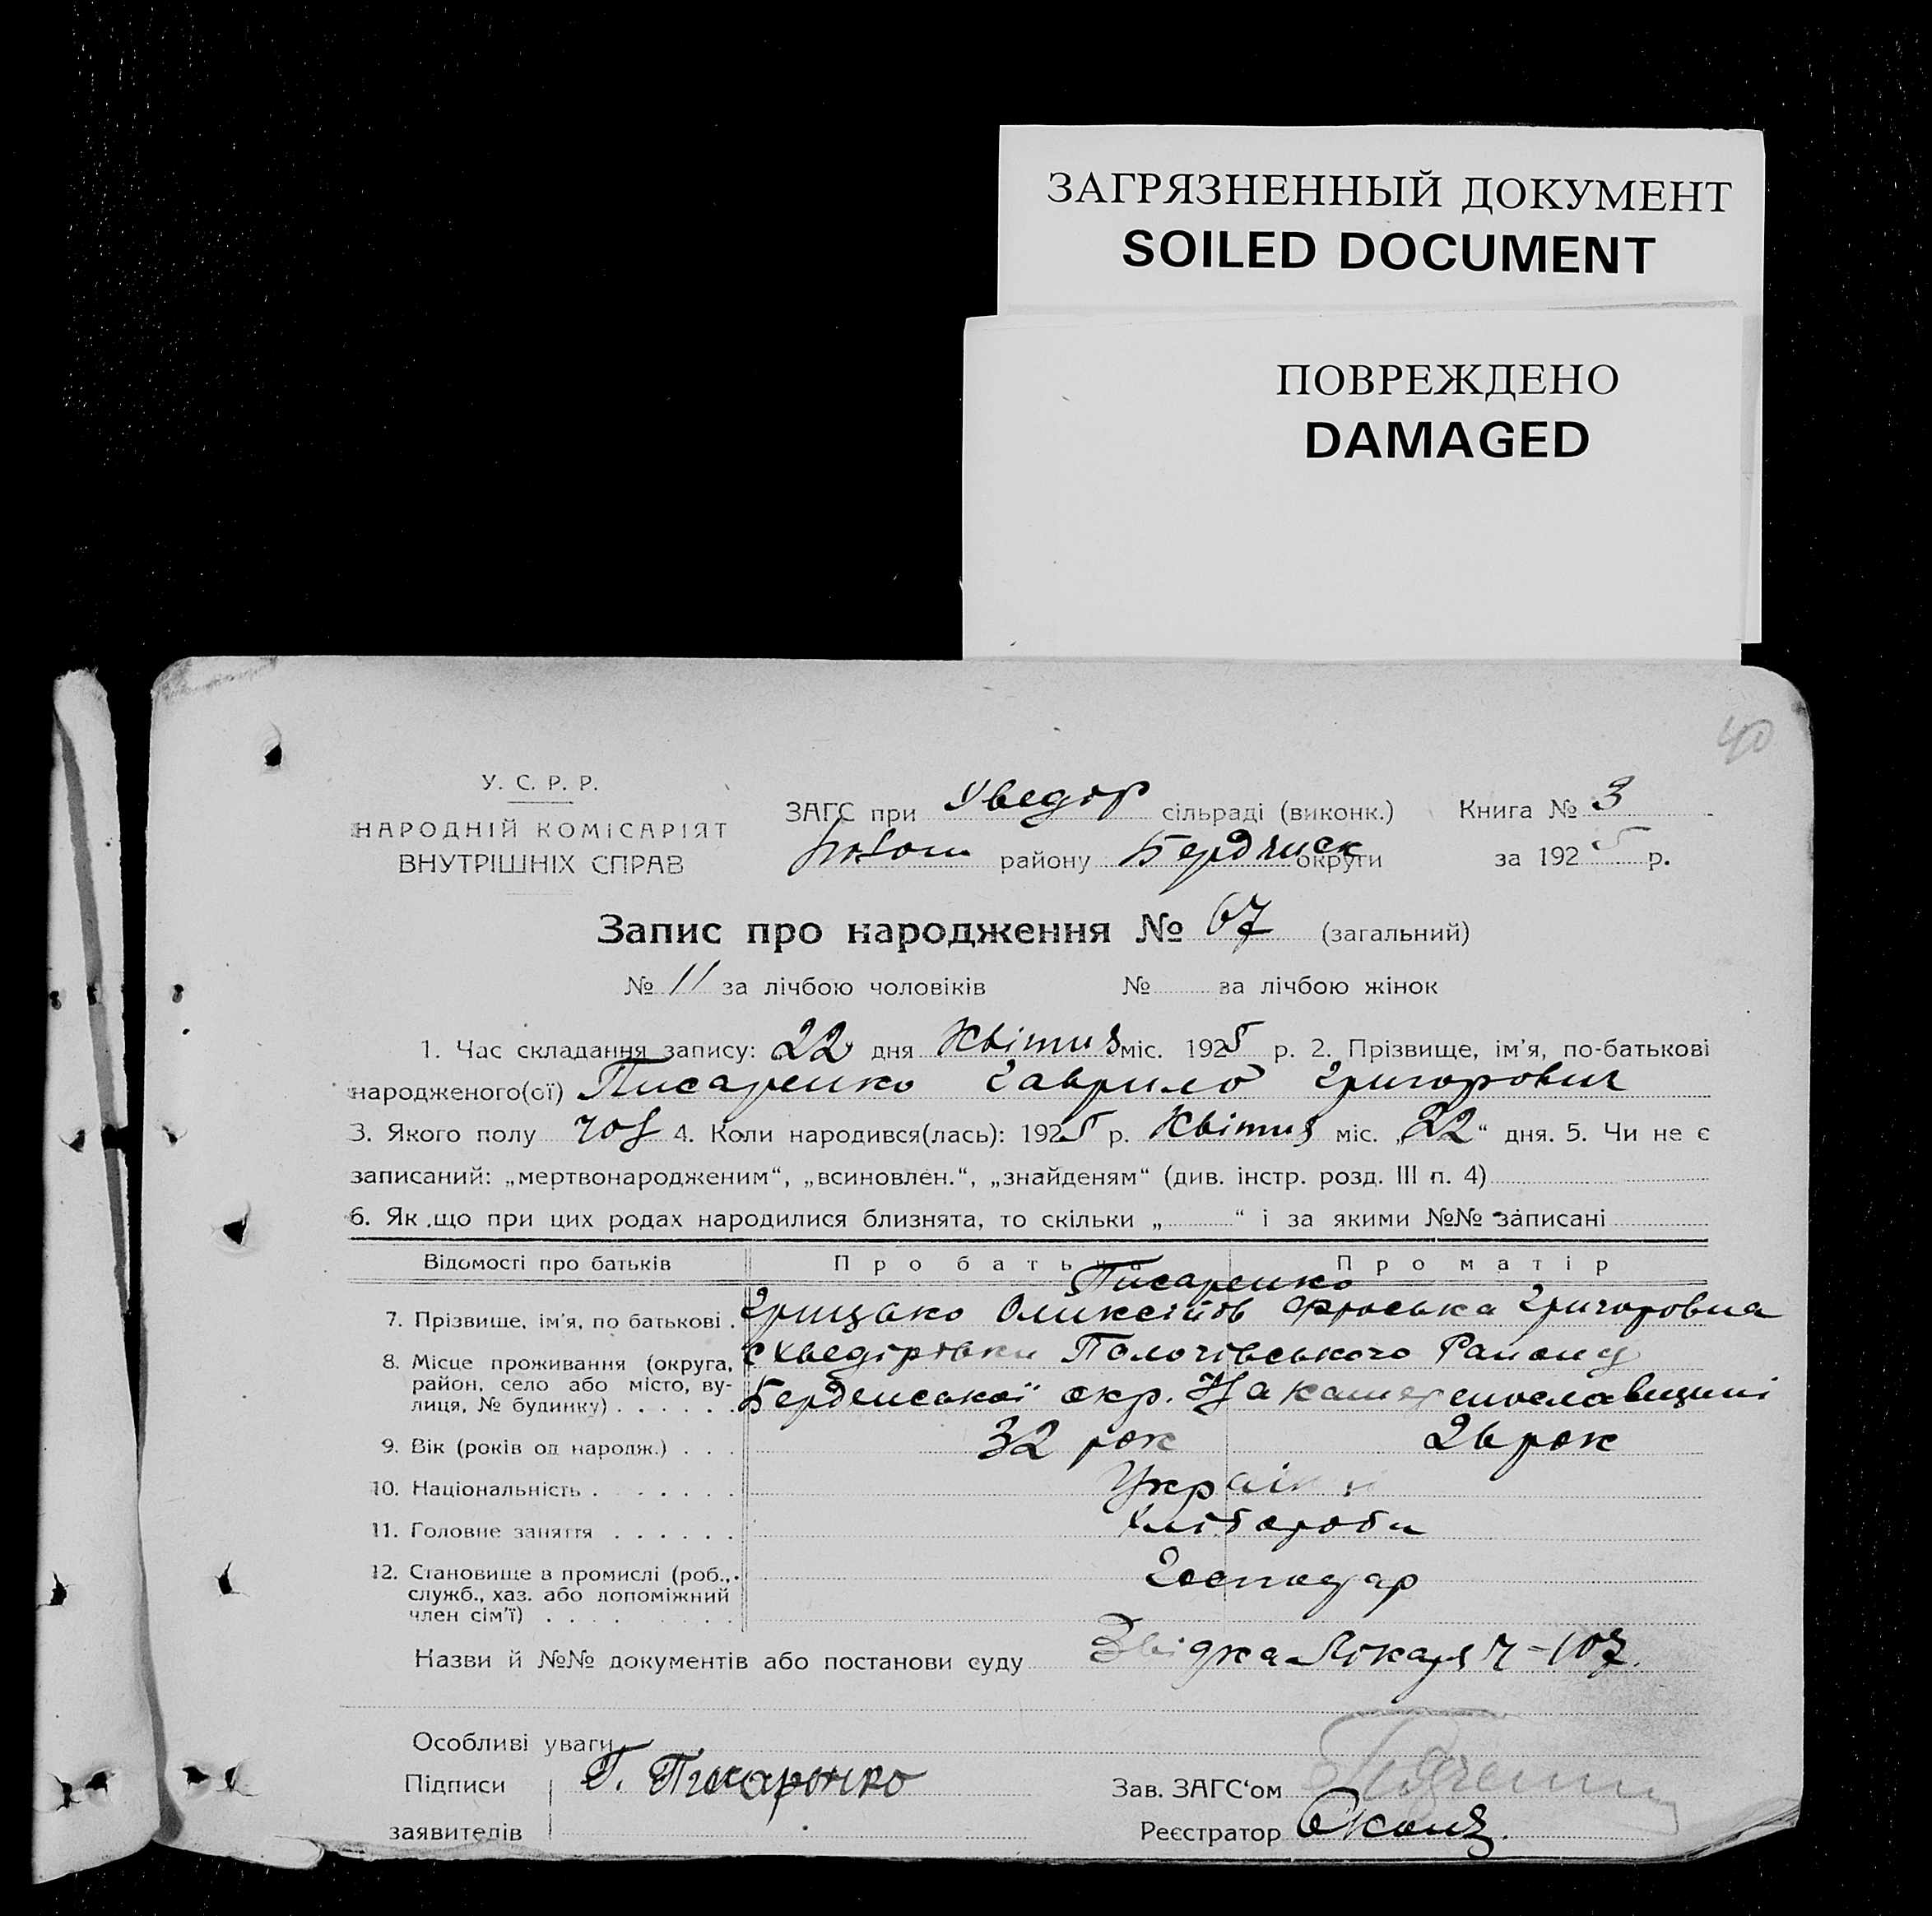 ЗАГРЯЗНЕННЫЙ ДОКУМЕНТ
SOILED DOCUMENT
ПОВРЕЖДЕНО
DAMAGED
40
У. С. Р. Р.
НАРОДНІЙ КОМІСАРІЯТ
ВНУТРІШНІХ СПРАВ
ЗАГС при Хведор сільраді (виконк.) Книга № 3
району Бердянск округи за 1925 р.
Запис про народження № 67 (загальний)
№ 11 за лічбою чоловіків № за лічбою жінок
1. Час складання запису: 22 дня Квітня міс. 1925 р. 2. Прізвище, ім'я, по-батькові
народженого(ої) Писаренко Гаврило Григорович
3. Якого полу чол 4. Коли народився(лась): 1925 р. Квітня міс. „22“ дня. 5. Чи не є
записаний: „мертвонародженим“, „всиновлен.“, „знайденям“ (див. інстр. розд. III п. 4)
6. Як що при цих родах народилися близнята, то скільки „ “ і за якими №№ записані
Відомості про батьків Про батька Про матір
Писаренко
7. Прізвище, ім'я, по батькові . Грицько Оликсіїов Фроська Григоровна
8. Місце проживання (округа, с Хведорівки Пологівського Району
район, село або місто, вулиця, № будинку) . . . . . . Бердянської окр. На Катеренославщині
9. Вік (років од народж.) . . . 32 рок 26 рок
10. Національність . . . . . . . Україн
11. Головне заняття . . . . . . Хлібороби
12. Становище в промислі (роб., Господар
служб., хаз. або допоміжний
член сім'ї) . . . . . . . . .
Назви й №№ документів або постанови суду Звідка Лікаря Ч-107.
Особливі уваги
Підписи Г. Писаренко Зав. ЗАГС'ом
заявителів Реєстратор